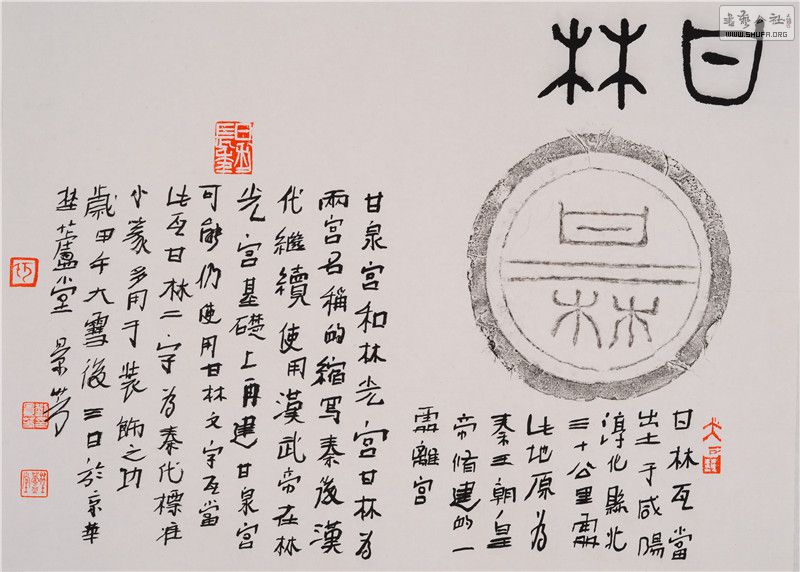 甘林
甘林
甘林瓦當
出土于咸陽
淳化縣北
三十公里處
此地原為
秦王朝皇
帝修建的一
處離宮
甘泉宮和林光宮甘林為
兩宮名稱的縮寫秦後漢
代繼續使用漢武帝在林
光宮基礎上再建甘泉宮
可能仍使用甘林文字瓦當
此瓦甘林二字為秦代標准
小篆多用于裝飾之功
歲甲午大雪後三日於京華
廬堂 景
WWW.SHUFA.ORG